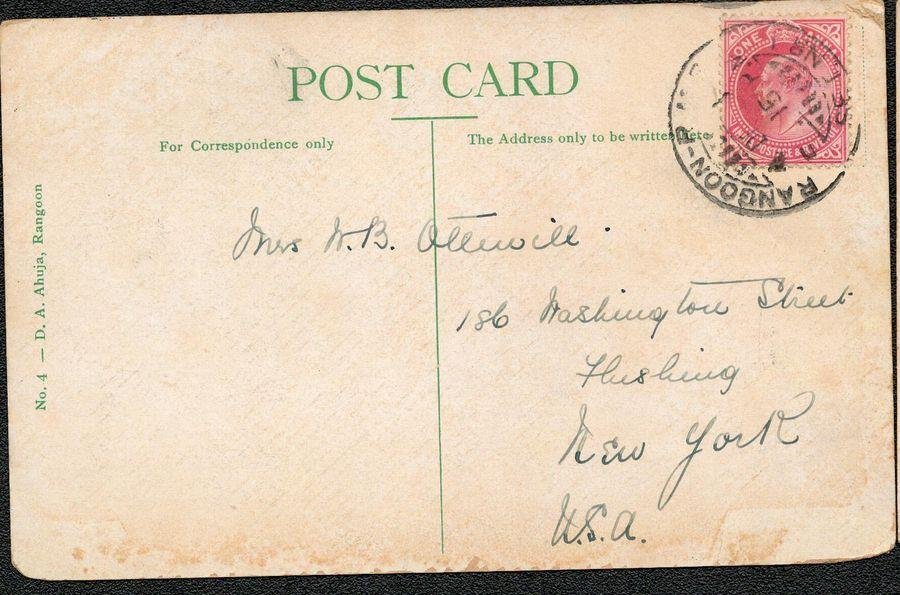 POST CARD
For Correspondence only
The Address only to be written here
No. 4 — D. A. Ahuja, Rangoon
ONE
POSTAGE &
RANGOON
Mrs W. B. Ottewill.
186 Washington Street
Flushing
New York
U.S.A.